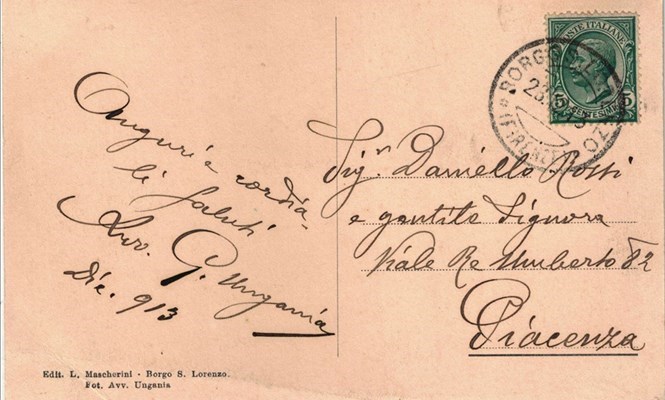 Auguri e cordia-
li saluti
Avv. G. Ungania
Dic. 913
Sig.r Daniello Rossi
e gentile Signora
Viale Re Umberto 82
Piacenza
POSTE ITALIANE
5 CENTESIMI 5
BORGO
(FIRENZE)
Edit. L. Mascherini - Borgo S. Lorenzo.
Fot. Avv. Ungania